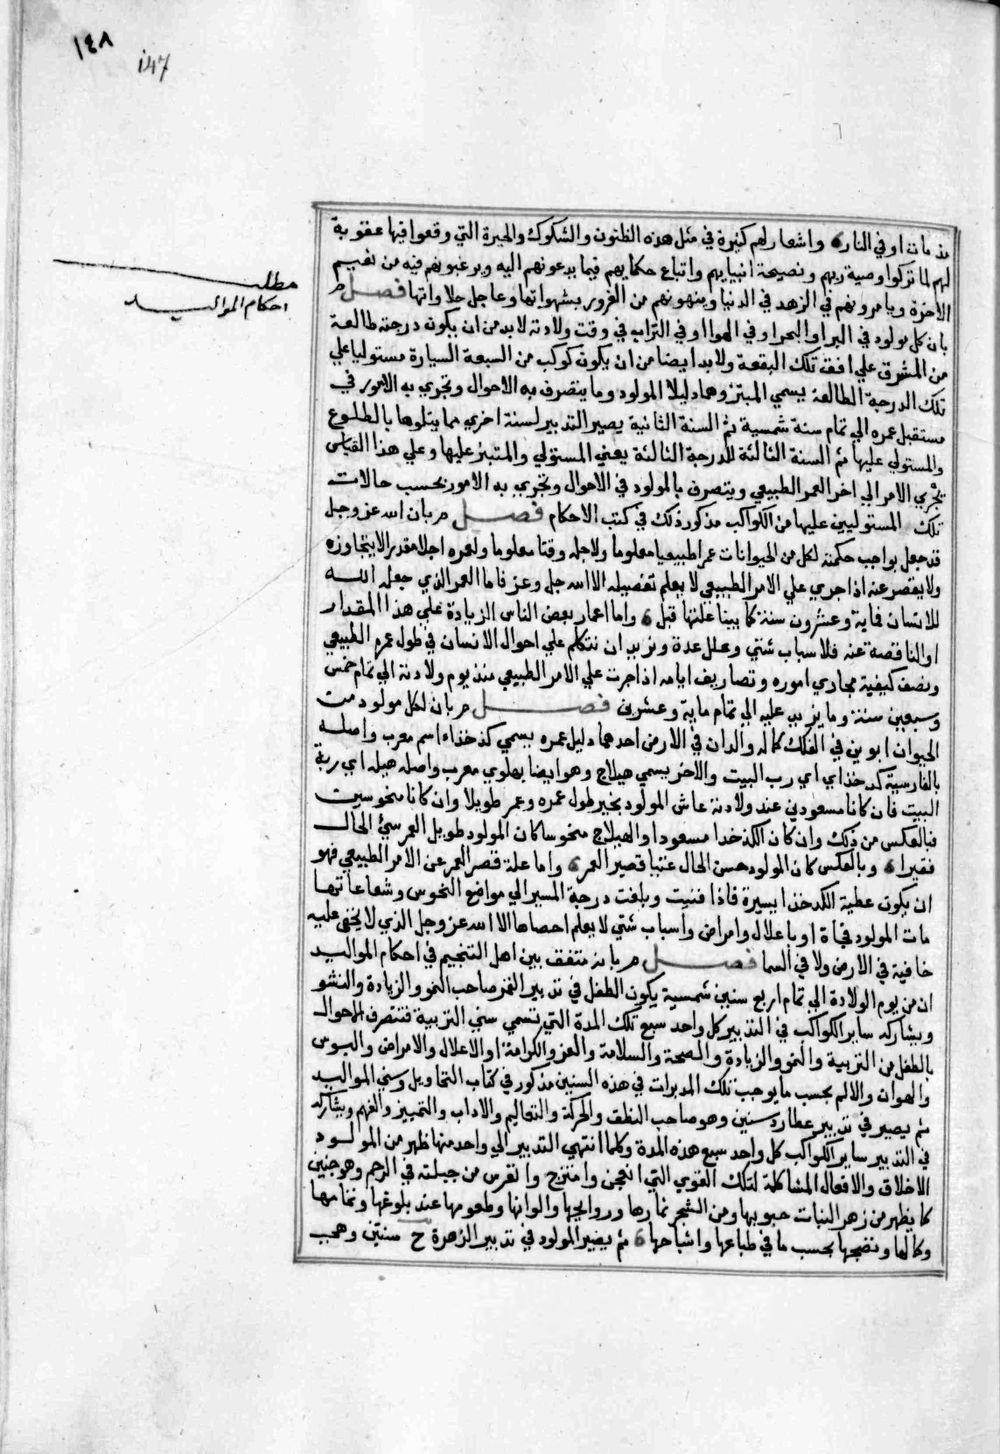 ١٤٨
147
مطلب
احكام المواليد
قد مات او في النار واشعار لهم كثيرة في مثل هذه الظنون والشكوك والحيرة التي وقعوا فيها عقوبة
لهم لما تركوا وصية ربهم ونصيحة انبيايهم واتباع حكمايهم فيما يدعونهم اليه ويرغبونهم فيه من نعيم
الاخرة ويامرونهم في الزهد في الدنيا وينهونهم من الغرور بشهواتها وعاجل حلاواتها فصل
بان كل مولود في البر او البحر او في الهوا او في التراب في وقت ولادته لا بد من ان يكون درجته طالعة
من المشرق علي افق تلك البقعة ولا بد ايضا من ان يكون كوكب من السبعة السيارة مستوليا علي
تلك الدرجة الطالعة يسمي المبتز وهما دليلا المولود وما يتصرف به الاحوال وتجري به الامور في
مستقبل عمره الي تمام سنة شمسية ثم السنة الثانية يصير التدبير لسنة اخري مما يتلوها بالطلوع
والمستولي عليها ثم السنة الثالثة للدرجة الثالثة يعني المستولي والمتبتز عليها وعلي هذا القياس
يجري الامر الي اخر العمر الطبيعي ويتصرف بالمولود في الاحوال وتجري به الامور بحسب حالات
تلك المستوليين عليها من الكواكب مذكور ذلك في كتب الاحكام فصل بان الله عز وجل
قد جعل بواجب حكمته لكل من الحيوانات عمرا طبيعيا معلوما ولاجله وقتا معلوما ولعمره اجلا مقدرا لا يتجاوزه
ولا يقصر عنه اذا جري علي الامر الطبيعي لا يعلم تفصيله الا الله جل وعز فاما العمر الذي جعله الله
للانسان فماية وعشرون سنة كما بينا علتها قبل واما اعمار بعض الناس الزيادة علي هذا المقدار
او الناقصة عنه فلاسباب شتي وعلل عدة ونريد ان نتكلم علي احوال الانسان في طول عمره الطبيعي
ونصف كيفية مجاري اموره وتصاريف ايامه اذا جرت علي الامر الطبيعي منذ يوم ولادته الي تمام خمس
وسبعين سنة وما يزيد عليه الي تمام ماية وعشرين فصل بان لكل مولود من
الحيوان ابوين في الفلك كما له والدان في الارض احدهما دليل عمره يسمي كدخذاه اسم معرب واصله
بالفارسية كد خذاي اي رب البيت والاخر يسمي هيلاج وهو ايضا بهلوي معرب واصله هيله اي ربة
البيت فان كانا مسعودين عند ولادته عاش المولود بخير طول عمره وعمر طويلا وان كانا منحوسين
فبالعكس من ذلك وان كان الكدخذا مسعودا والهيلاج منحوسا كان المولود طويل العمر سئ الحال
فقيرا وبالعكس كان المولود حسن الحال غنيا قصير العمر واما علة قصر العمر عن الامر الطبيعي فهو
ان يكون عطية الكدخذا يسيرة فاذا فنيت وبلغت درجة المسير الي مواضع النحوس وشعاعاتها
مات المولود فجاة او باعلال وامراض واسباب شتي لا يعلم احصاها الا الله عز وجل الذي لا يخفي عليه
خافية في الارض ولا في السما فصل بانه متفق بين اهل التنجيم في احكام المواليد
ان من يوم الولادة الي تمام اربع سنين شمسية يكون الطفل في تدبير القمر صاحب النمو والزيادة والنشو
ويشاركه ساير الكواكب في التدبير كل واحد سبع تلك المدة التي تسمي سني التربية فتتصرف الاحوال
بالطفل من التربية والنمو والزيادة والصحة والسلامة والعز والكرامة او الاعلال والامراض والبوس
والهوان والالم بحسب ما يوجب تلك المدبرات في هذه السنين مذكور في كتاب التحاويل وسني المواليد
ثم يصير في تدبير عطارد سنين وهو صاحب النطق والحركة والتعاليم والاداب والتمييز والفهم ويشاركه
في التدبير ساير الكواكب كل واحد سبع هذه المدة وكلما انتهي التدبير الي واحد منها ظهر من المولود
الاخلاق والافعال المشاكلة لتلك القوي التي انعجن وامتزج وانغرس من جبلته في الرحم وهو جنين
كما يظهر من زهر النبات حبوبها ومن الشجر ثمارها وروايحها والوانها وطعومها عند بلوغها وتمامها
وكمالها ونضجها بحسب ما في طباعها واشباحها ثم يصير المولود في تدبير الزهرة ح سنين وهي